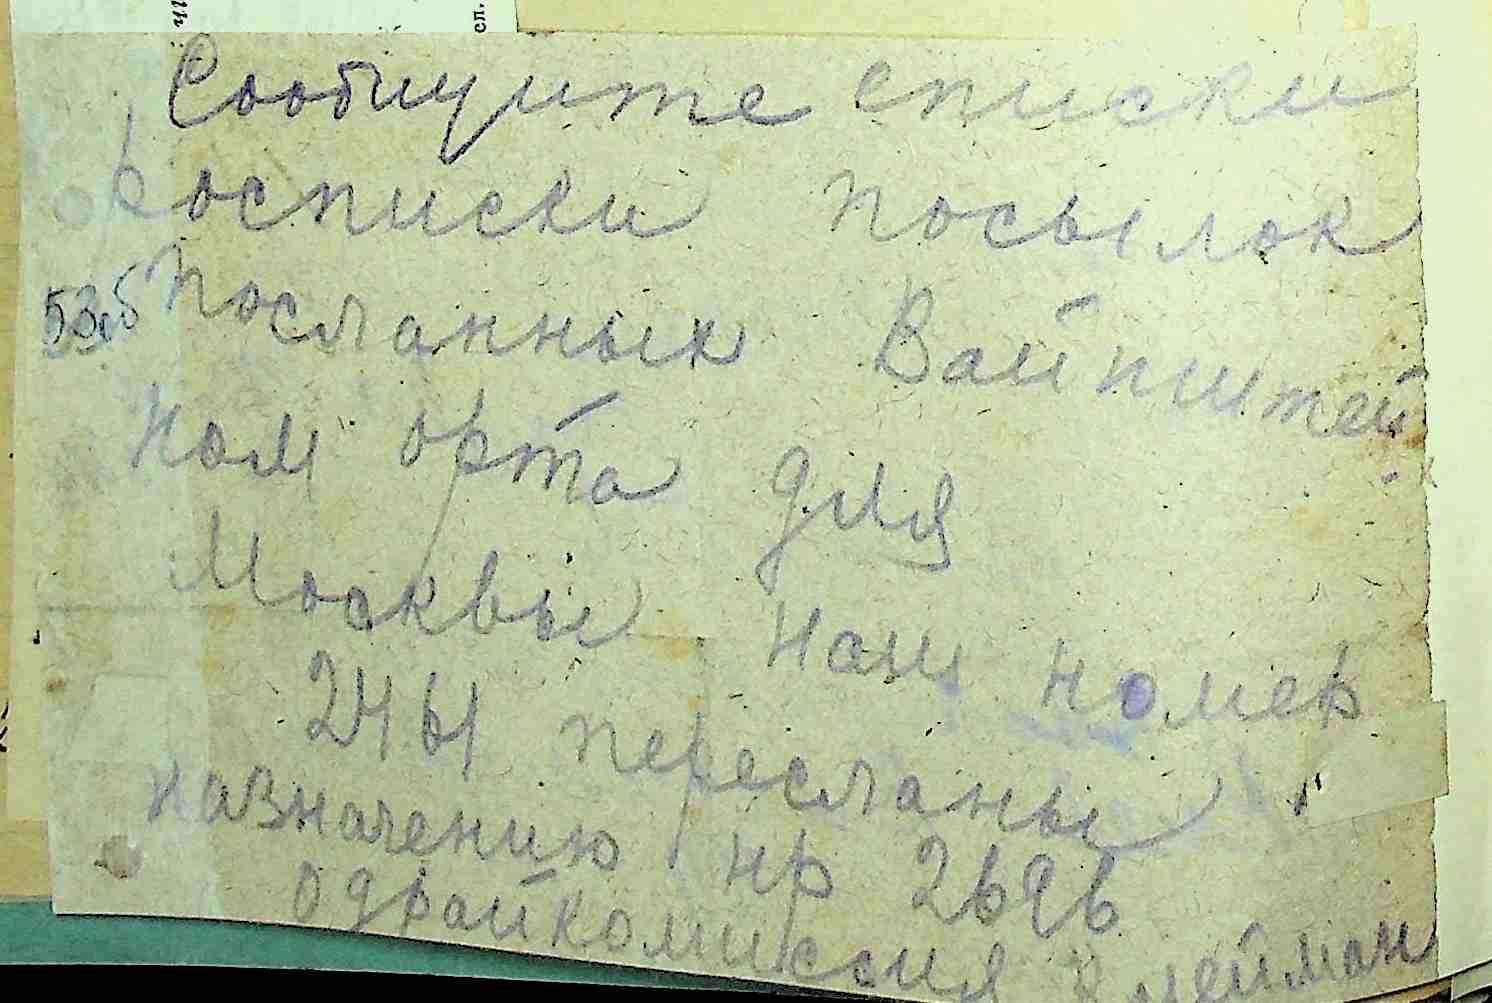 сл.
Сообщите списки
росписки посылок
посланных Вайпштей
ном орта для
Москвы наш номер
24 61 пересланы
назначению нр 2696
одрайкомиссия лейман